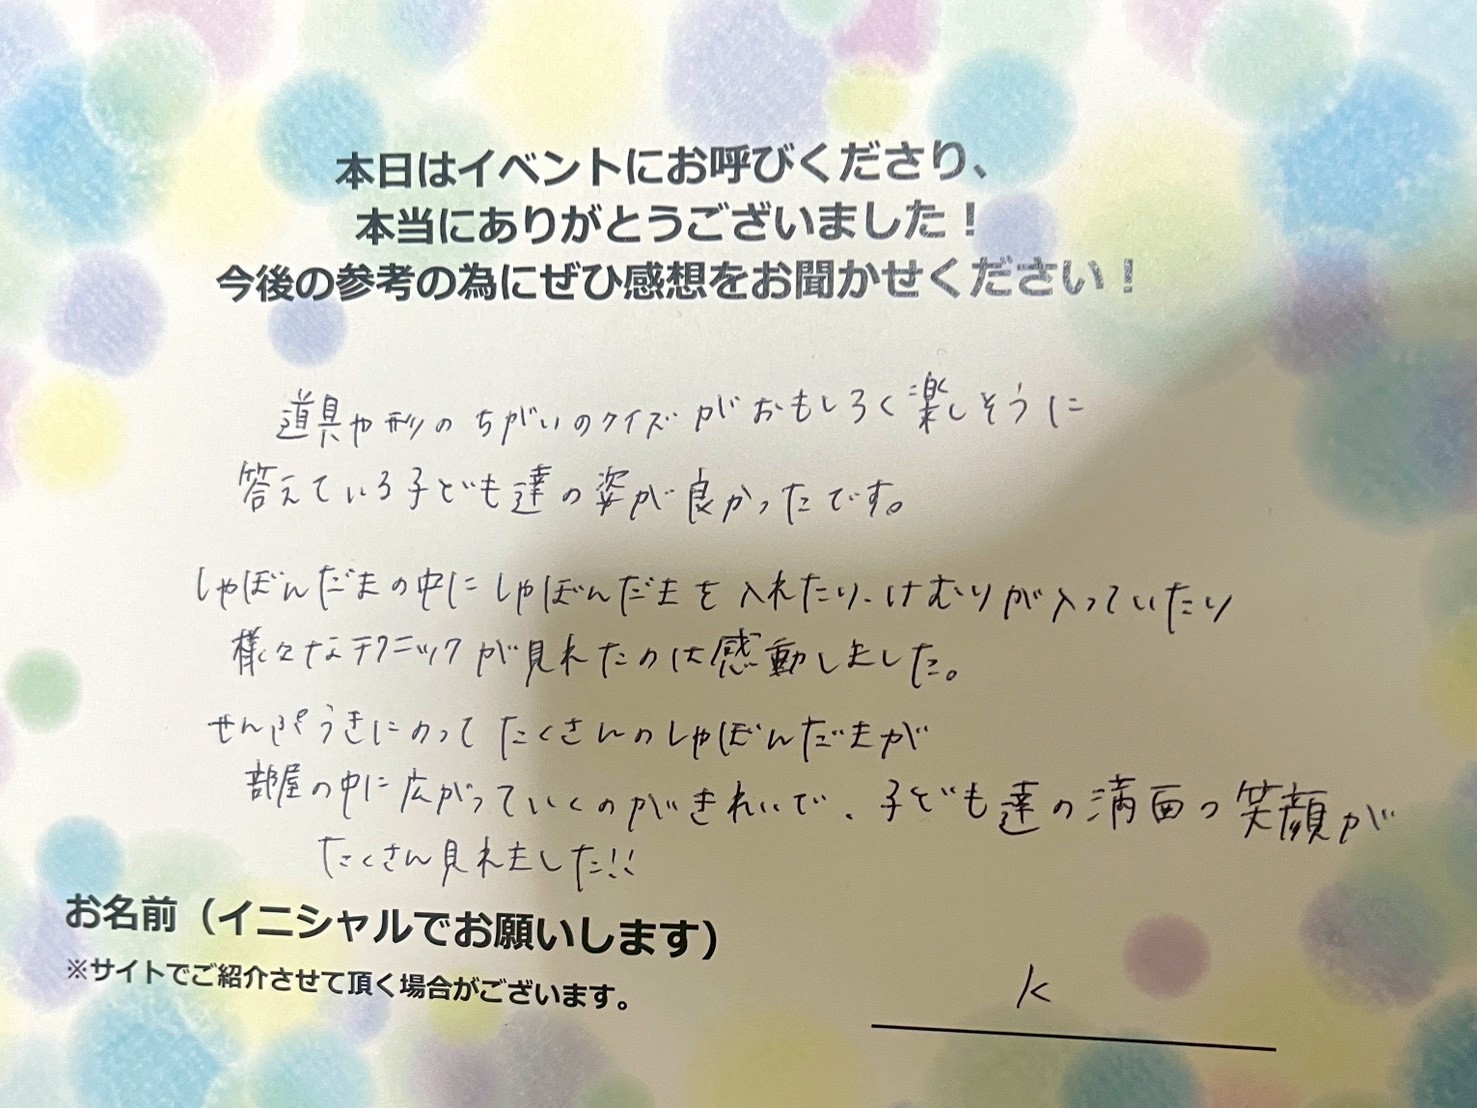 本日はイベントにお呼びくださり、
本当にありがとうございました！
今後の参考の為にぜひ感想をお聞かせください！
道具や形のちがいのクイズがおもしろく楽しそうに
答えている子ども達の姿が良かったです。
しゃぼんだまの中にしゃぼんだまを入れたり、けむりが入っていたり
様々なテクニックが見れたのは感動しました。
せんぷうきにのってたくさんのしゃぼんだまが
部屋の中に広がっていくのがきれいで、子ども達の満面の笑顔が
たくさん見れました!!
お名前（イニシャルでお願いします）
※サイトでご紹介させて頂く場合がございます。
K